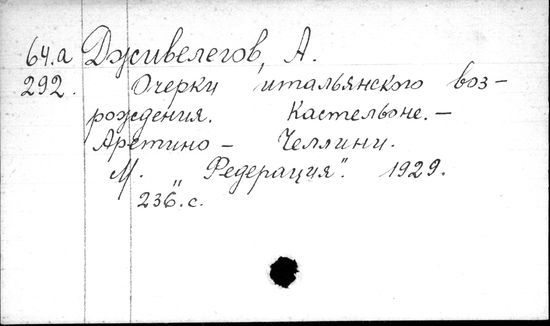 64.а Дживелегов, А.
292. Очерки итальянского воз-
рождения. Кастельоне. —
Аретино — Челлини.
М. „Федерация". 1929.
236.с.